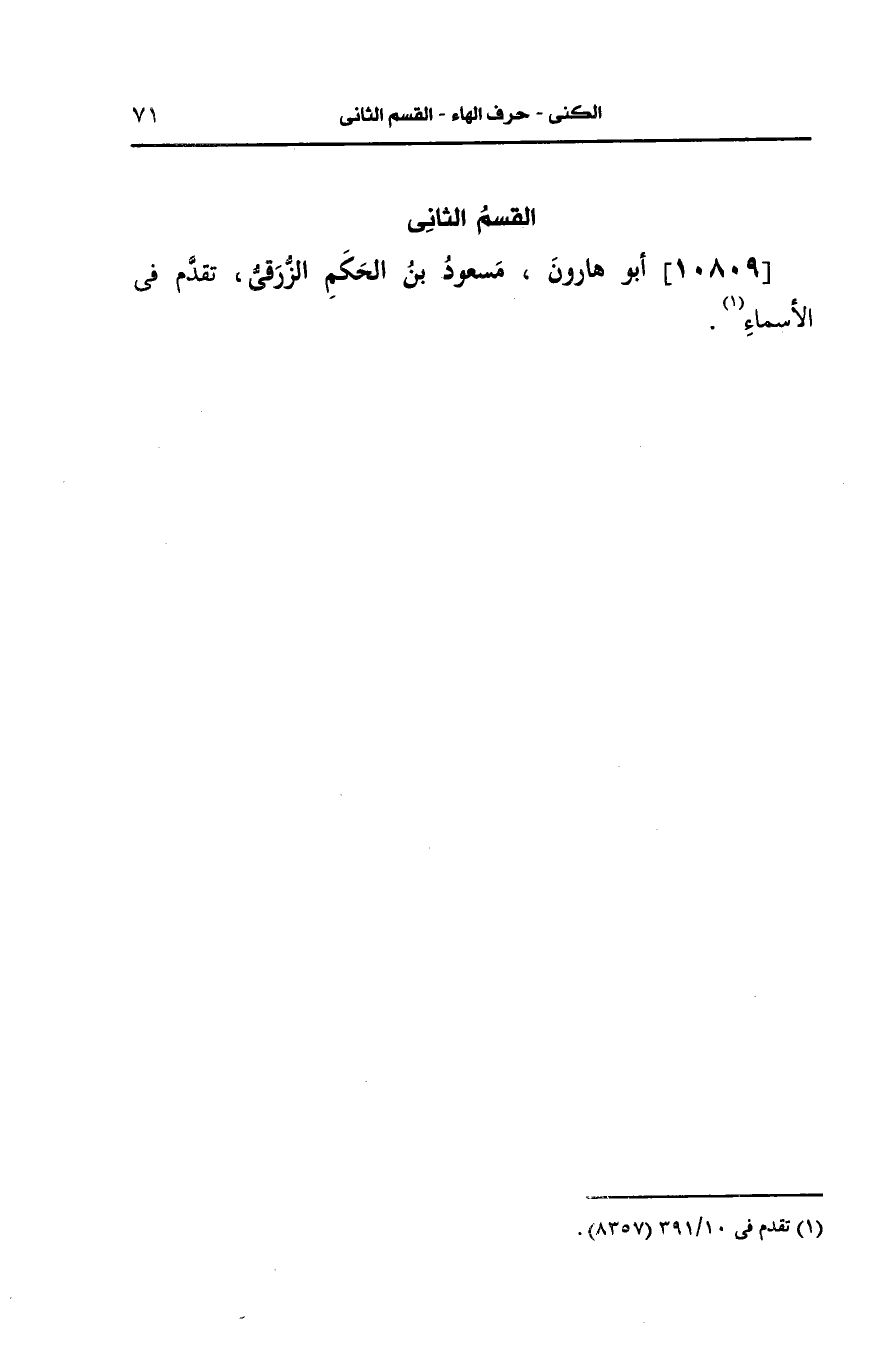 الكنى - حرف الهاء - القسم الثانى ٧١
القسمُ الثانِى
[١٠٨٠٩] أبو هارونَ ، مَسعودُ بنُ الحَكَمِ الزُّرَقىُّ، تقدَّم فى
الأسماءِ(١) .
(١) تقدم فى ٣٩١/١٠ (٨٣٥٧) .